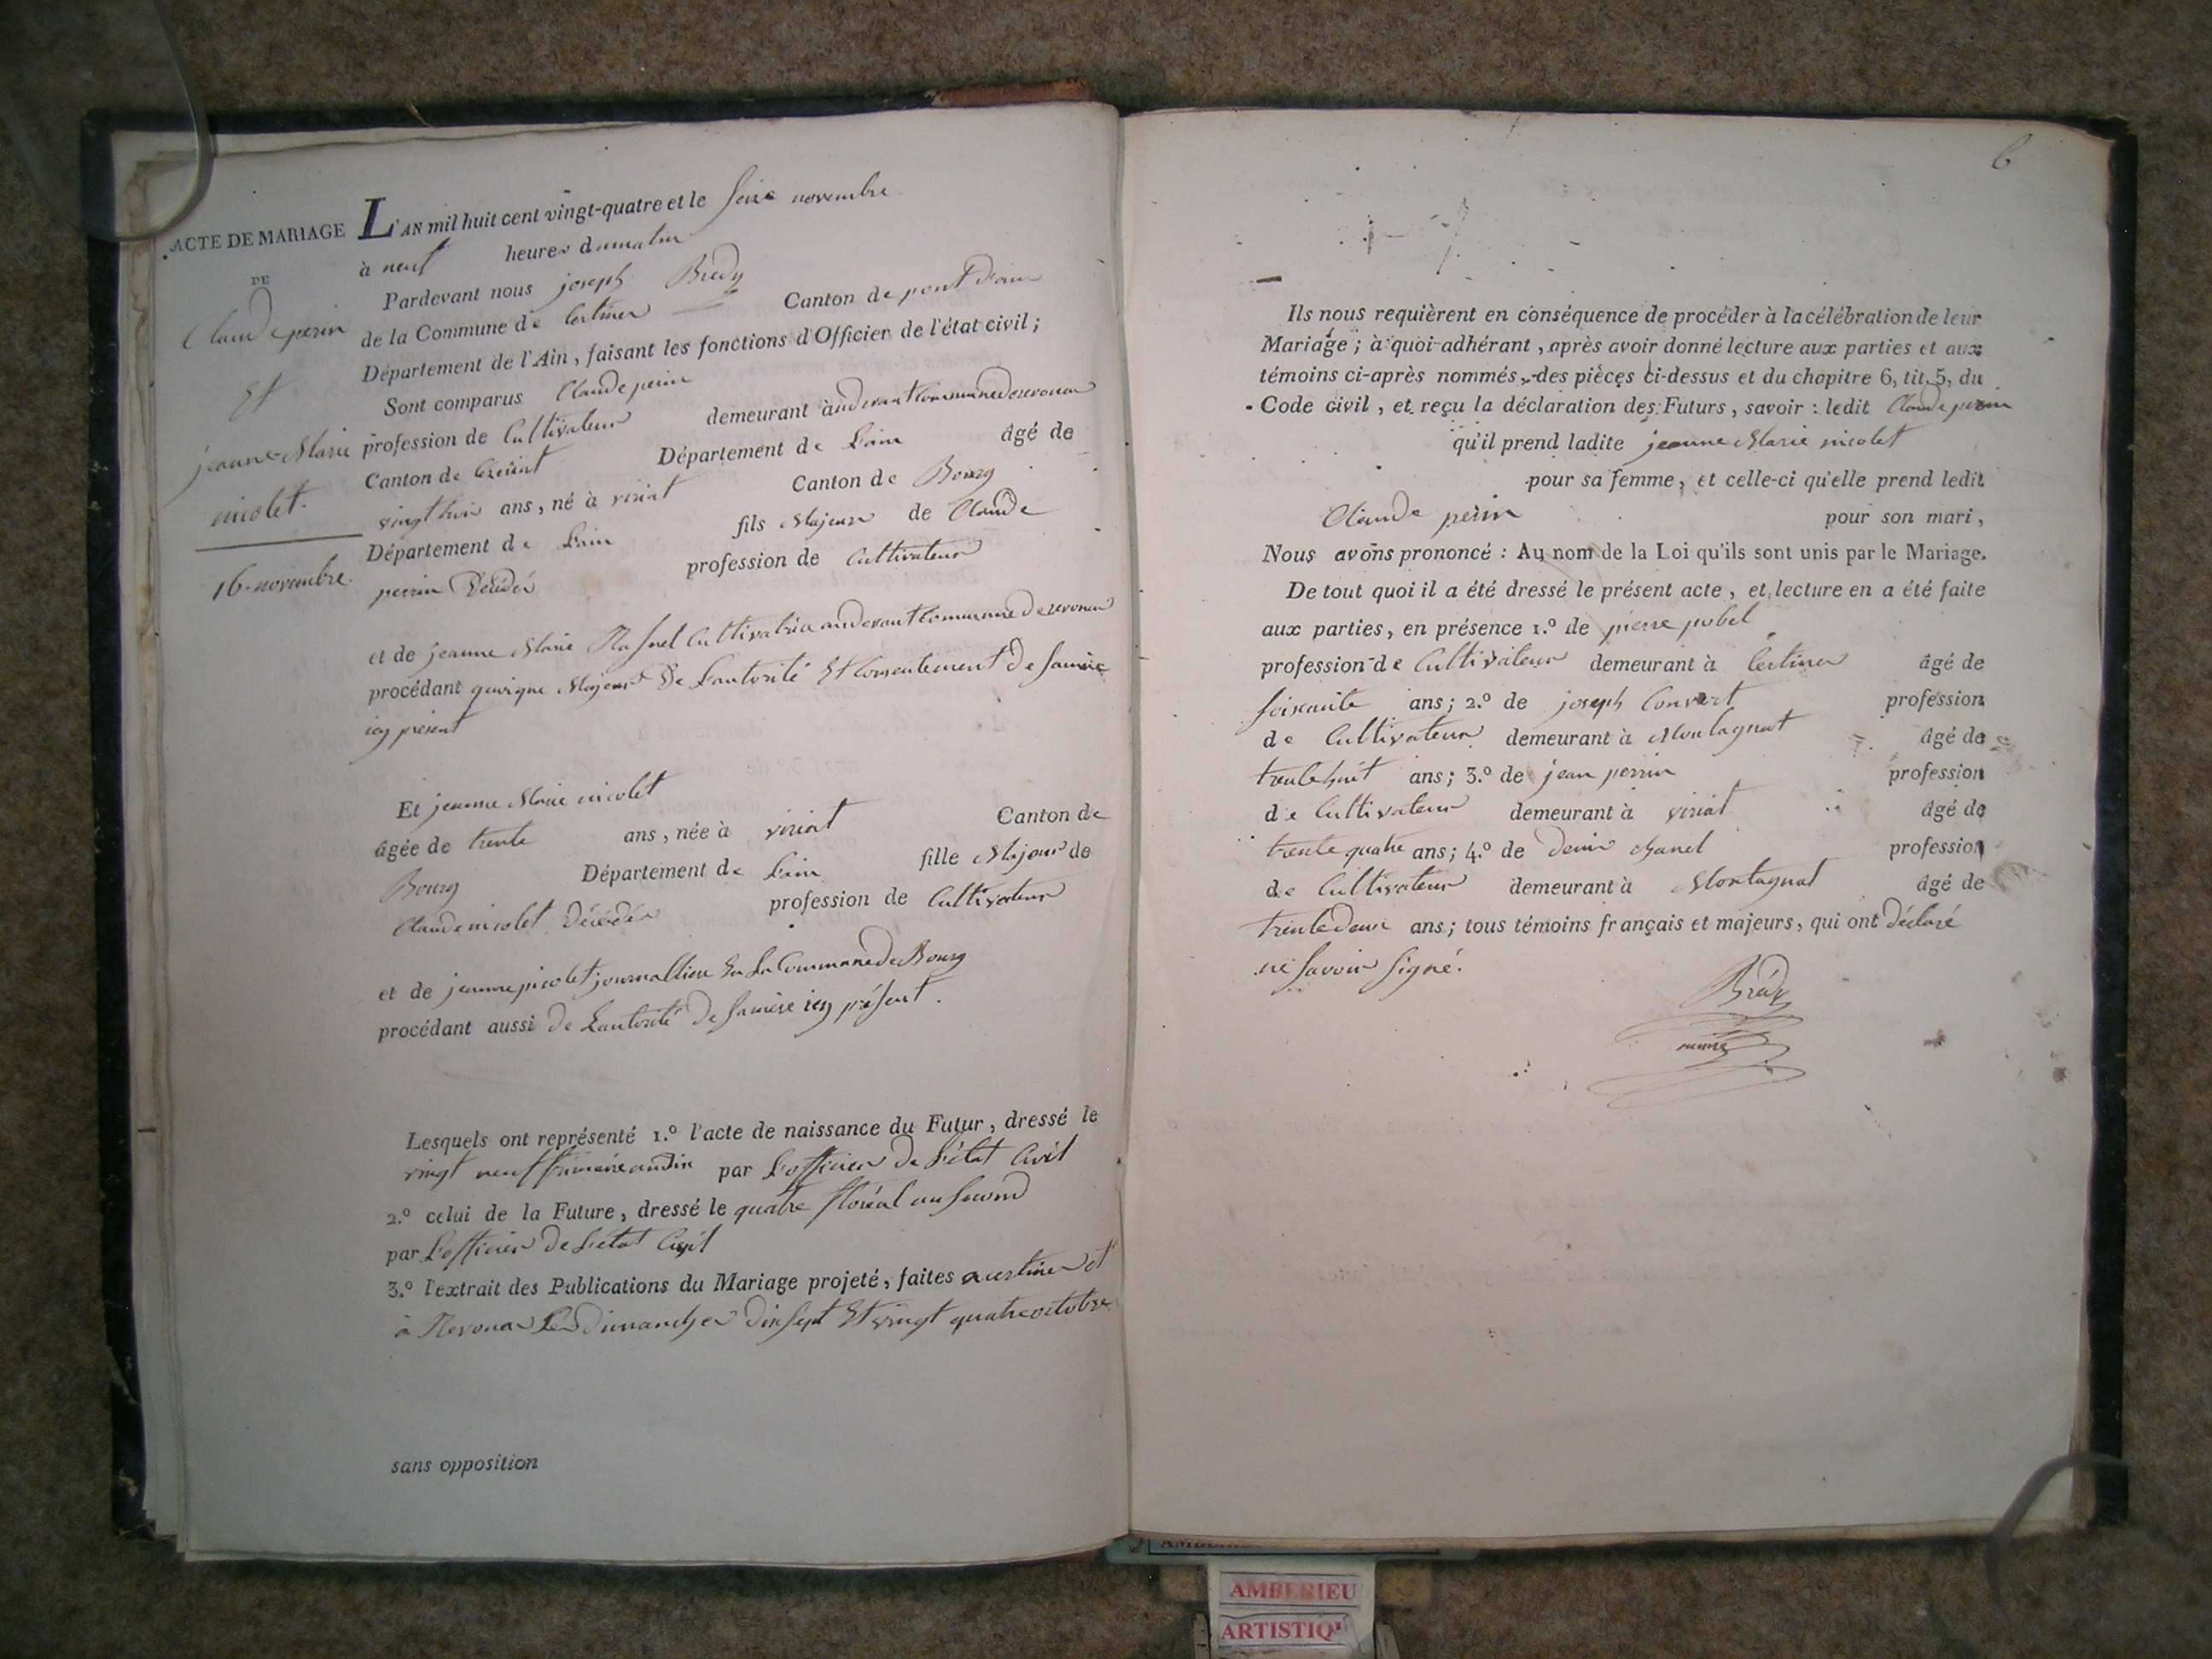 ACTE DE MARIAGE
DE
Claude perin
Et
jeanne Marie
nicolet.
16. novembre.
L'AN mil huit cent vingt-quatre et le seize novembre
à neuf heures du matin
Pardevant nous joseph Brédy
de la Commune de Certines Canton de pont d'ain
Département de l'Ain, faisant les fonctions d'Officier de l'état civil;
Sont comparus Claude perin
profession de Cultivateur demeurant à commune de revonas
Canton de Ceziriat Département de Lain âgé de
ans, né à viriat Canton de Bourg
Département de Lain fils Majeur de Claude
perrin Décédés profession de Cultivateur
et de jeanne Marie Cultivatrice commune de revonas
procédant quoique Majeur De Lautorité Et Consentement De samère
icy présent
Et jeanne Marie nicolet
âgée de trente ans, née à viriat Canton de
Bourg Département de Lain fille Majeur de
Claude nicolet Décédés profession de Cultivateur
et de jeanne picolet journallière Sur La Commune De Bourg
procédant aussi De Lautorité De samère icy présent.
Lesquels ont représenté 1.º l'acte de naissance du Futur, dressé le
vingt neuf frimaire an dix par Lofficier De Létat Civil
2.º celui de la Future, dressé le quatre floréal an second
par Lofficier De Létat Civil
3.º l'extrait des Publications du Mariage projeté, faites a certines et
à Revonas Les Dimanches Dix sept Et vingt quatre octobre
sans opposition
6
Ils nous requièrent en conséquence de procéder à la célébration de leur
Mariage; à quoi adhérant, après avoir donné lecture aux parties et aux
témoins ci-après nommés, des pièces ci-dessus et du chapitre 6, tit. 5, du
Code civil, et reçu la déclaration des Futurs, savoir: ledit Claude perin
qu'il prend ladite jeanne Marie nicolet
pour sa femme, et celle-ci qu'elle prend ledit
Claude perin pour son mari,
Nous avons prononcé: Au nom de la Loi qu'ils sont unis par le Mariage.
De tout quoi il a été dressé le présent acte, et lecture en a été faite
aux parties, en présence 1.º de pierre pobel
profession de Cultivateur demeurant à Certines âgé de
soixante ans; 2.º de joseph Convert profession
de Cultivateur demeurant à Montagnat âgé de
trente huit ans; 3.º de jean perrin profession
de Cultivateur demeurant à viriat âgé de
trente quatre ans; 4.º de Denis Chanel profession
de Cultivateur demeurant à Montagnat âgé de
trente deux ans; tous témoins français et majeurs, qui ont déclaré
ne savoir signé.
Brédy
maire
AMBERIEU
ARTISTIQ